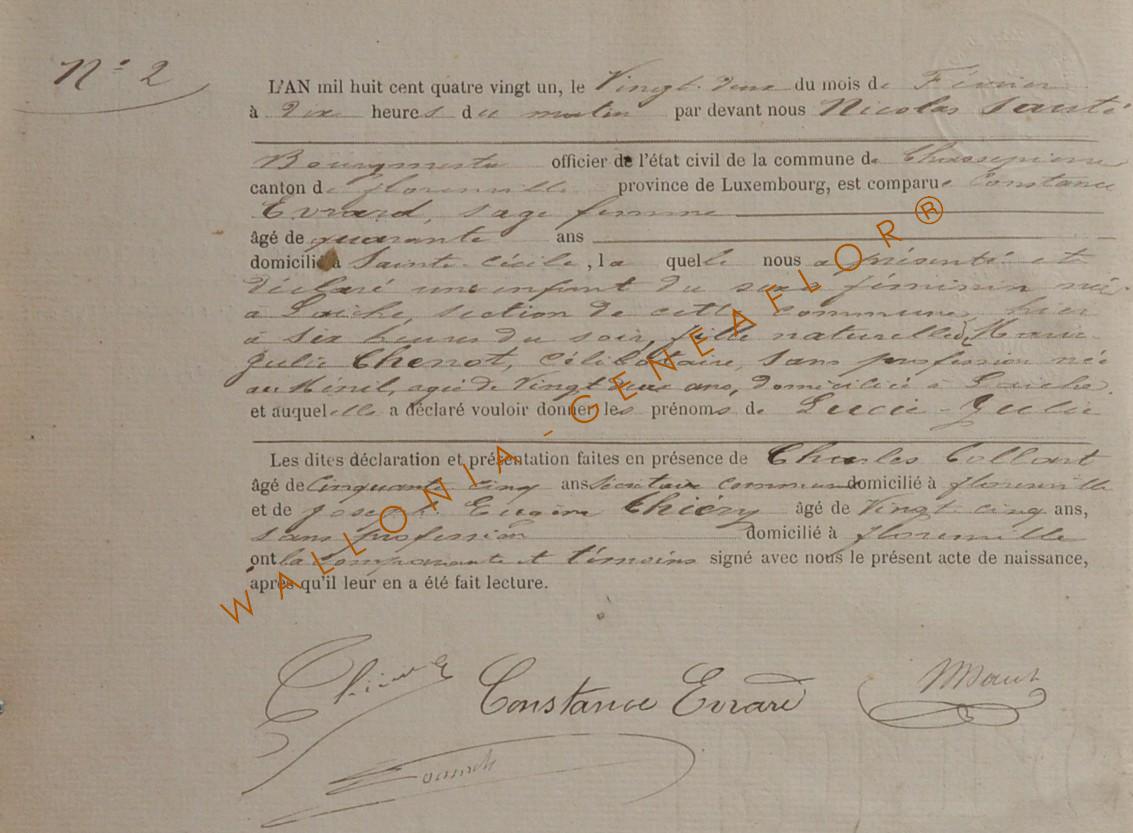 N° 2
L'AN mil huit cent quatre vingt un, le Vingt-deux du mois de Février
à dix heures du matin par devant nous Nicolas
Bourgmestre officier de l'état civil de la commune de Chassepierre
canton de florenville province de Luxembourg, est comparue Constance
Evrard, sage femme
âgé de quarante ans
domicilié à Sainte-Cécile, laquelle nous a présenté et
déclaré un enfant du sexe féminin né
a Laiche, section de cette commune, hier
à six heures du soir, fille naturelle Marie
Julie Chenot, célibataire, sans profession née
au Ménil, agée de Vingt deux ans, domiciliée à Laiche.
et auquelelle a déclaré vouloir donner les prénoms de Lucie-Julie
Les dites déclaration et présentation faites en présence de Charles Collart
âgé de Cinquante cinq ans Secrétaire communal domicilié à florenville
et de Joseph Eugène Thiéry âgé de Vingt cinq ans,
sans profession domicilié à florenville
ont la comparante et témoins signé avec nous le présent acte de naissance,
après qu'il leur en a été fait lecture.
Constance Evrard
WALLONIA-GENEAFLOR®